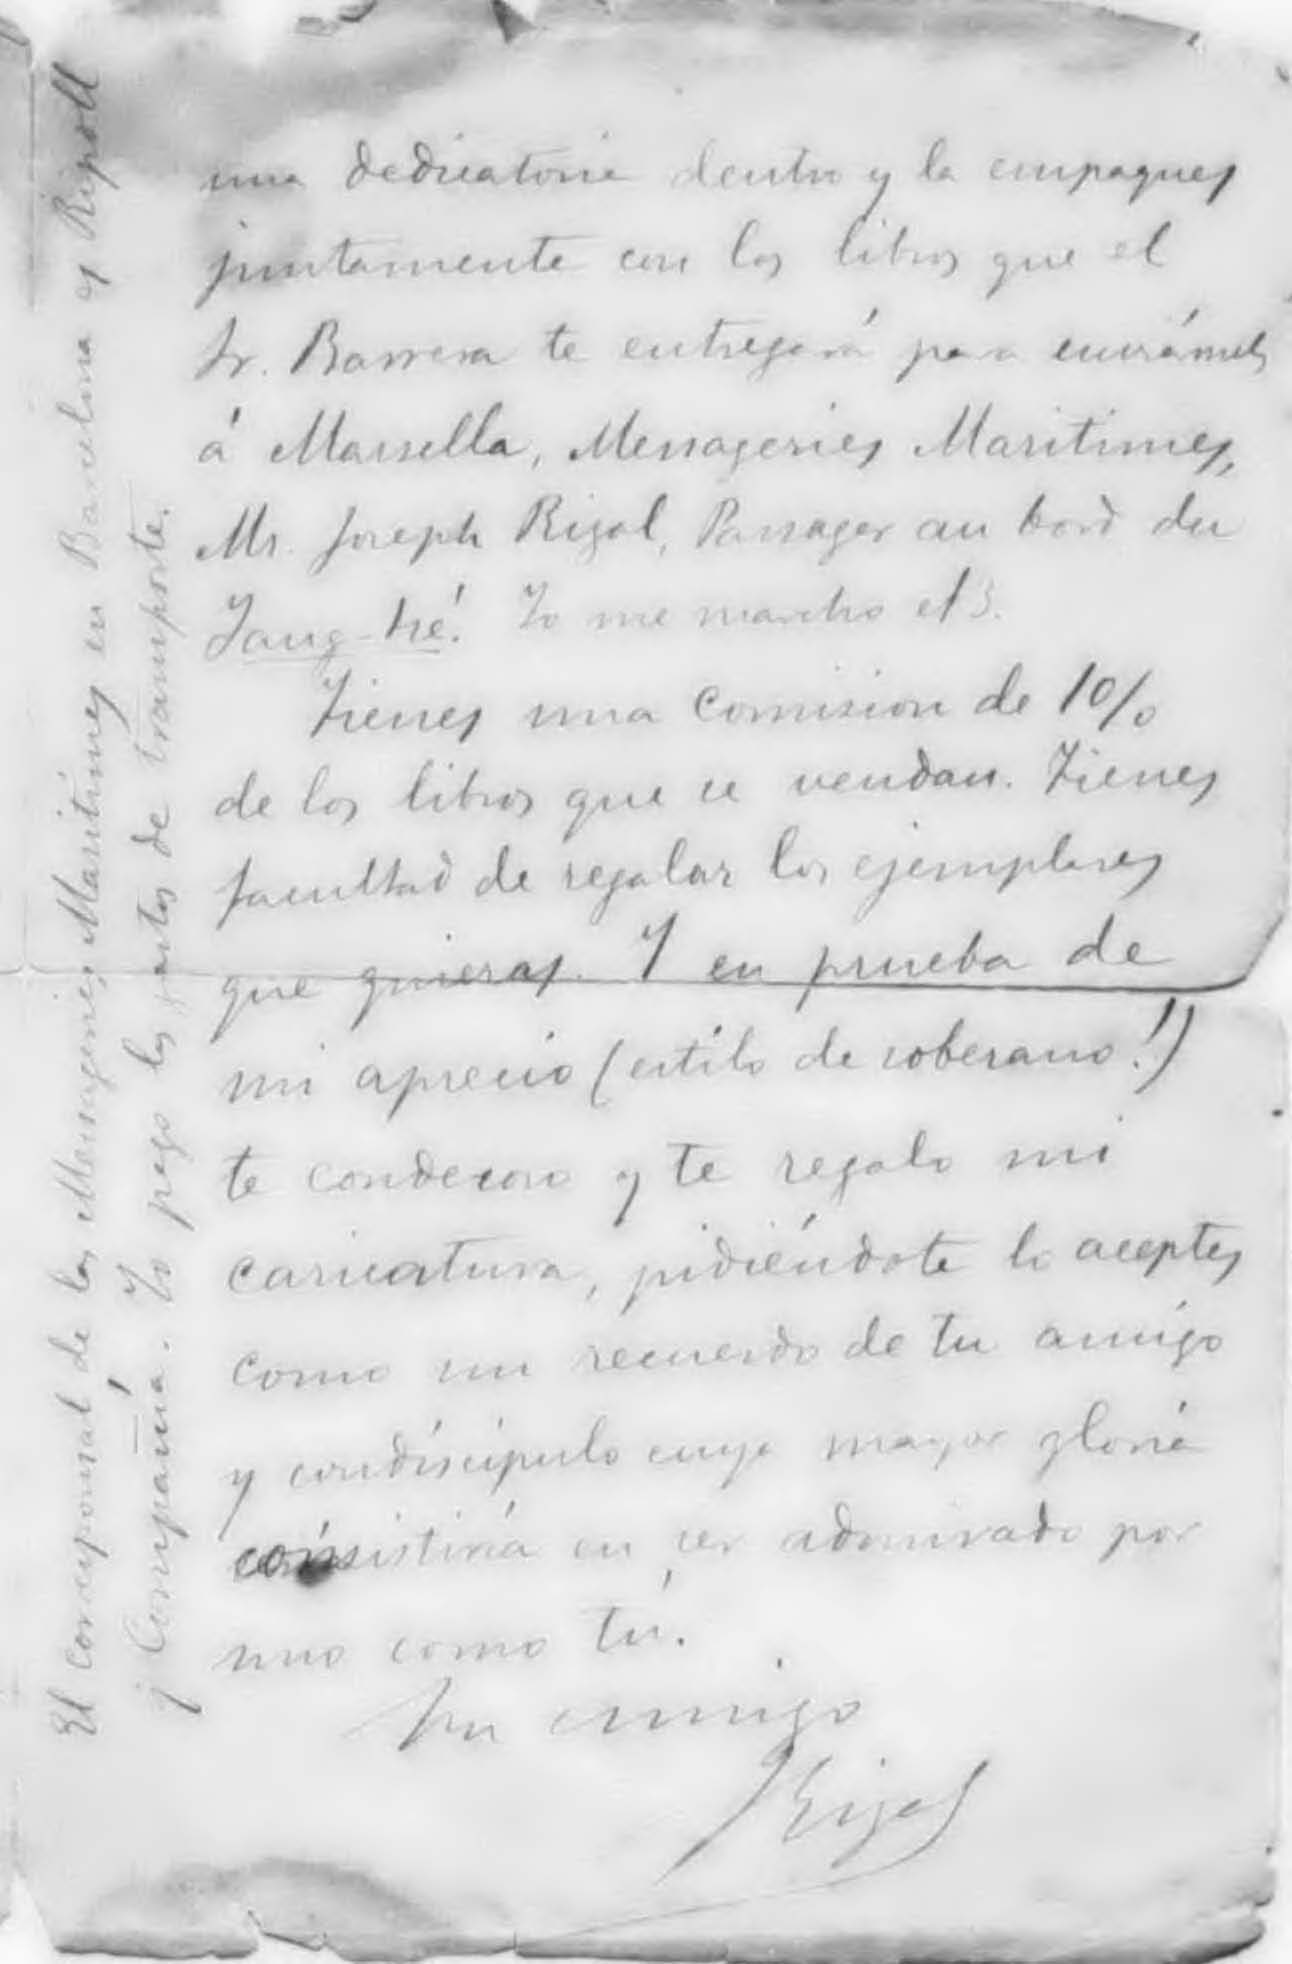 una dedicatoria dentro y la empaques
juntamente con los libros que el
Sr. Barrera te entregará para enviármelos
á Marsella, Messageries Maritimes,
Mr. Joseph Rizal, Passager au bord du
Yang-tsé. Yo me marcho el 3.
Tienes una comision de 10%
de los libros que se vendan. Tienes
facultad de regalar los ejemplares
que quieras. Y en prueba de
mi aprecio (estilo de soberano!)
te condecoro y te regalo mi
caricatura, pidiéndote lo aceptes
como un recuerdo de tu amigo
y condiscípulo cuya mayor gloria
consistiría en ser admirado por
uno como tú.
Su amigo
Rizal
El corresponsal de las Messageries Maritimes en Barcelona es Ripoll
y Compañía. Yo pago los gastos de transporte.